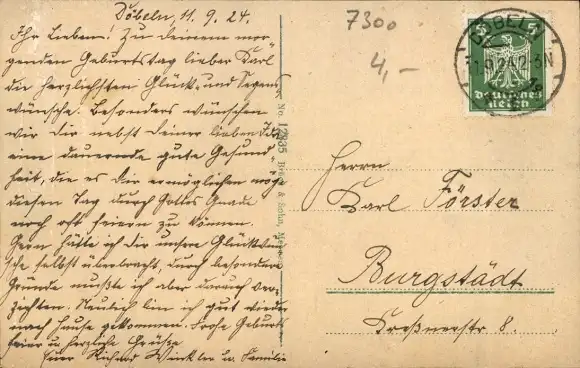 Döbeln, 11. 9. 24.
Ihr Lieben! Zu deinem mor-
genden Geburtstag lieber Karl
die herzlichsten Glück- und Segens-
wünsche. Besonders wünschen
wir dir nebst deiner lieben
eine dauernde gute Gesund-
heit, die es dir ermöglichen möge
diesen Tag durch Gottes Gnade
noch oft feiern zu können.
Gern hätte ich dir unsere Glückwün-
sche selbst überbracht, durch besondere
Gründe mußte ich aber darauf ver-
zichten. Neulich bin ich gut wieder
nach Hause gekommen. Frohe Geburts-
feier u. herzliche Grüße
Euer Richard Winkler u. Familie
No. 12935
7300
4,-
DÖBELN
Deutsches
Reich
Herrn
Karl Förster
Burgstädt
8.